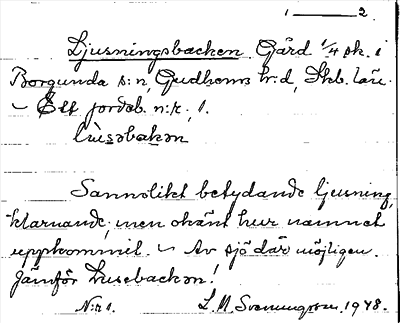 1 — 2.
Ljusningsbacken. Gård 1/4 sk. i
Borgunda s:n, Gudhems h:d, Skb. län.
— Ett jordeb. n:r, 1.
lùsəbakən
Sannolikt betydande ljusning,
klarnande, men okänt hur namnet
uppkommit. — Av sjö där möjligen.
Jämför Lusebacken!
N:r 1. L. M. Svenungson. 1948.